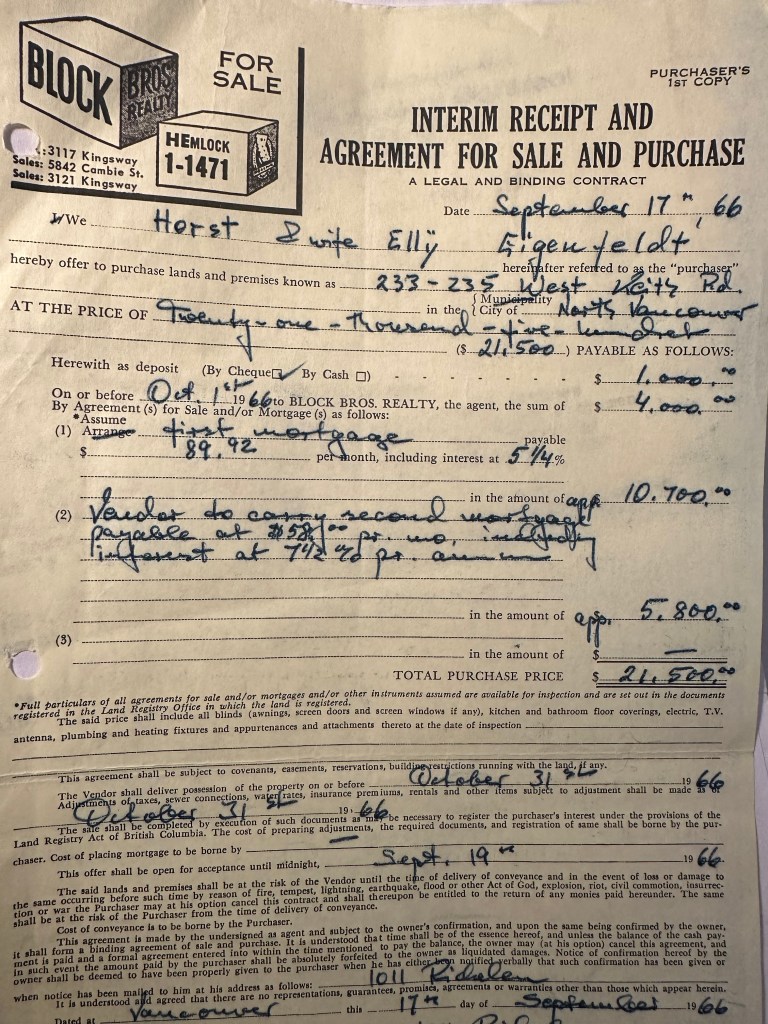 BLOCK
BROS.
REALTY
FOR
SALE
HEMLOCK
1-1471
:3117 Kingsway
Sales: 5842 Cambie St.
Sales: 3121 Kingsway
PURCHASER'S
1ST COPY
INTERIM RECEIPT AND
AGREEMENT FOR SALE AND PURCHASE
A LEGAL AND BINDING CONTRACT
Date September 17th, 66
I/We Horst & wife Elly Eigenfeldt
hereby offer to purchase lands and premises known as 233-235 West Keith Rd. hereinafter referred to as the "purchaser"
AT THE PRICE OF Twenty-one-thousand-five-hundred in the { Municipality City of North Vancouver
($ 21,500 ) PAYABLE AS FOLLOWS:
Herewith as deposit (By Cheque ☑ By Cash ☐) - - - - - - - $ 1.000.00
On or before Oct. 1st 1966 to BLOCK BROS. REALTY, the agent, the sum of $ 4,000.00
By Agreement(s) for Sale and/or Mortgage(s) as follows:
*Assume
(1) Arrange first mortgage payable
$ 89.92 per month, including interest at 5 1/4 %
in the amount of app $ 10.700.00
(2) Vendor to carry second mortgage
payable at $58.00 pr. mo, including
interest at 7 1/2 % pr. annum
in the amount of app. 5.800.00
(3)
in the amount of $ —
TOTAL PURCHASE PRICE $ 21,500.00
*Full particulars of all agreements for sale and/or mortgages and/or other instruments assumed are available for inspection and are set out in the documents
registered in the Land Registry Office in which the land is registered.
The said price shall include all blinds (awnings, screen doors and screen windows if any), kitchen and bathroom floor coverings, electric, T.V.
antenna, plumbing and heating fixtures and appurtenances and attachments thereto at the date of inspection
This agreement shall be subject to covenants, easements, reservations, building restrictions running with the land, if any.
The Vendor shall deliver possession of the property on or before October 31st 1966
Adjustments of taxes, sewer connections, water rates, insurance premiums, rentals and other items subject to adjustment shall be made as of
October 31st 1966
The sale shall be completed by execution of such documents as may be necessary to register the purchaser's interest under the provisions of the
Land Registry Act of British Columbia. The cost of preparing adjustments, the required documents, and registration of same shall be borne by the pur-
chaser. Cost of placing mortgage to be borne by —
This offer shall be open for acceptance until midnight, Sept. 19th 1966
The said lands and premises shall be at the risk of the Vendor until the time of delivery of conveyance and in the event of loss or damage to
the same occurring before such time by reason of fire, tempest, lightning, earthquake, flood or other Act of God, explosion, riot, civil commotion, insurrec-
tion or war the Purchaser may at his option cancel this contract and shall thereupon be entitled to the return of any monies paid hereunder. The same
shall be at the risk of the Purchaser from the time of delivery of conveyance.
Cost of conveyance is to be borne by the Purchaser.
This agreement is made by the undersigned as agent and subject to the owner's confirmation, and upon the same being confirmed by the owner,
it shall form a binding agreement of sale and purchase. It is understood that time shall be of the essence hereof, and unless the balance of the cash pay-
ment is paid and a formal agreement entered into within the time mentioned to pay the balance, the owner may (at his option) cancel this agreement, and
in such event the amount paid by the purchaser shall be absolutely forfeited to the owner as liquidated damages. Notice of confirmation hereof by the
owner shall be deemed to have been properly given to the purchaser when he has either been notified verbally that such confirmation has been given or
when notice has been mailed to him at his address as follows: 1011
It is understood and agreed that there are no representations, guarantees, promises, agreements or warranties other than those which appear herein.
Dated at Vancouver this 17th day of September 1966